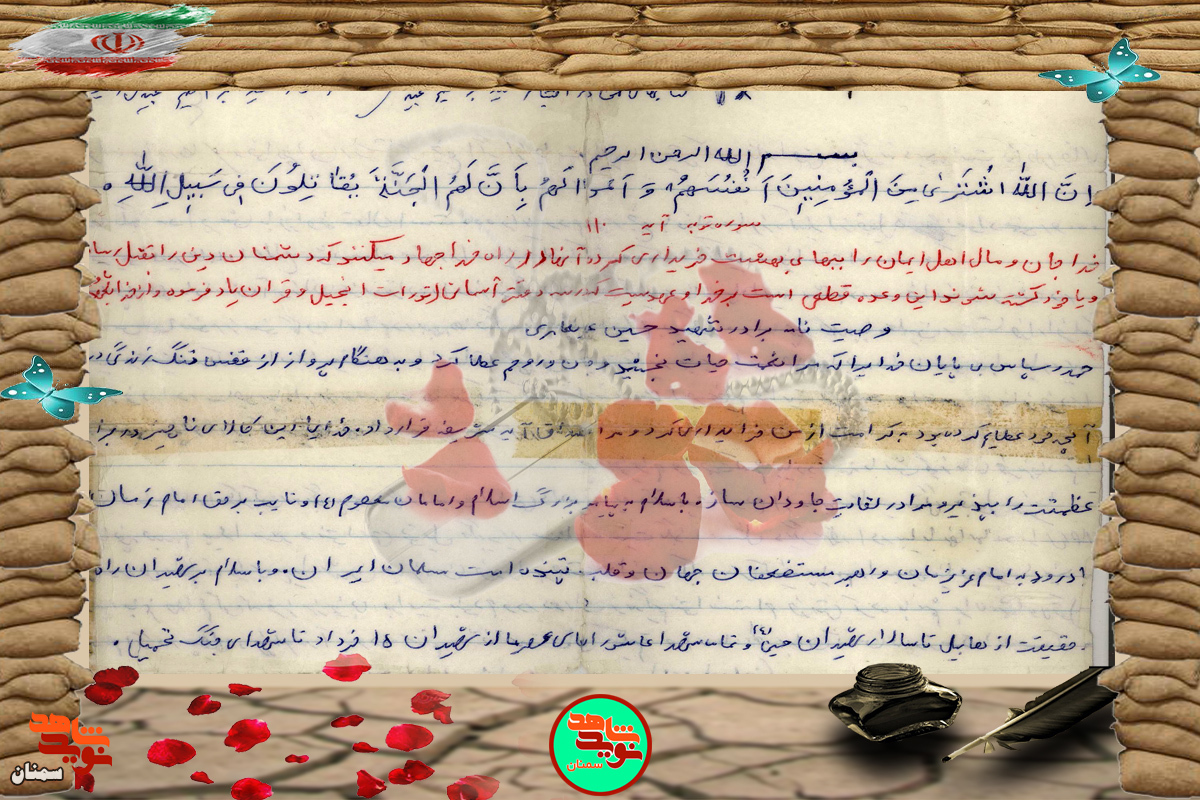 بسم الله الرحمن الرحیم
اِنَّ اللّٰهَ اشْتَرىٰ مِنَ الْمُؤمِنینَ اَنْفُسَهُمْ وَ اَموالَهُمْ بِاَنَّ لَهُمُ الْجَنَّةَ یُقاتِلُونَ فی سَبیلِ اللّٰهِ
سوره توبه آیه ۱۱۰
خدا جان و مال اهل ایمان را ببهای بهشت خریداری کرده آنها در راه خدا جهاد میکنند که دشمنان دین را بقتل رسا
و یا خود کشته شوند این وعده قطعی است بر خدا و عهدیست که در سه دفتر آسمانی تورات انجیل و قران یاد فرموده و از خدا
وصیت نامه برادر شهید حسین
حمد و سپاس بی پایان خدایرا که مرا نعمت حیات بخشید و من و روحم عطا کرد و به هنگام پرواز از قفس تنگ زندگی
آنچه خود عطایم کرده بود به کرامت از من خریداری کرد و مرا مصداق آیه شریفه قرار داد. خدایا این کالای ناچیز در برابر
عظمتت را بپذیر و مرا در لقایت جاودان ساز. با سلام به پیامبر بزرگ اسلام و امامان معصوم (ع) و نایب بر حق امام زمان
درود به امام عزیزمان و رهبر مستضعفان جهان و قلب تپنده امت مسلمان ایران. و با سلام بر شهیدان راه
حقیقت از هابیل تا سالار شهیدان حسین (ع) و تمام شهدا عاشورای عصر ما از شهیدان ۱۵ خرداد تا شهدای جنگ تحمیلی.
نوید شاهد
سمنان
نوید شاهد
سمنان